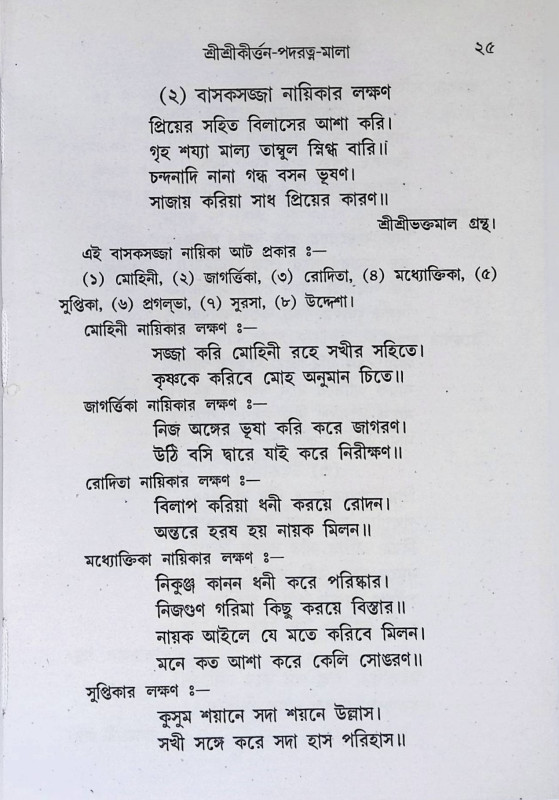 শ্রীশ্রীকীর্ত্তন-পদরত্ন-মালা ২৫
(২) বাসকসজ্জা নায়িকার লক্ষণ
প্রিয়ের সহিত বিলাসের আশা করি।
গৃহ শয্যা মাল্য তাম্বুল স্নিগ্ধ বারি॥
চন্দনাদি নানা গন্ধ বসন ভূষণ।
সাজায় করিয়া সাধ প্রিয়ের কারণ॥
শ্রীশ্রীভক্তমাল গ্রন্থ।
এই বাসকসজ্জা নায়িকা আট প্রকার ঃ—
(১) মোহিনী, (২) জাগর্ত্তিকা, (৩) রোদিতা, (৪) মধ্যোক্তিকা, (৫)
সুপ্তিকা, (৬) প্রগল্‌ভা, (৭) সুরসা, (৮) উদ্দেশা।
মোহিনী নায়িকার লক্ষণ ঃ—
সজ্জা করি মোহিনী রহে সখীর সহিতে।
কৃষ্ণকে করিবে মোহ অনুমান চিতে॥
জাগর্ত্তিকা নায়িকার লক্ষণ ঃ—
নিজ অঙ্গের ভূষা করি করে জাগরণ।
উঠি বসি দ্বারে যাই করে নিরীক্ষণ॥
রোদিতা নায়িকার লক্ষণ ঃ—
বিলাপ করিয়া ধনী করয়ে রোদন।
অন্তরে হরষ হয় নায়ক মিলন॥
মধ্যোক্তিকা নায়িকার লক্ষণ ঃ—
নিকুঞ্জ কানন ধনী করে পরিষ্কার।
নিজগুণ গরিমা কিছু করয়ে বিস্তার॥
নায়ক আইলে যে মতে করিবে মিলন।
মনে কত আশা করে কেলি সোঙরণ॥
সুপ্তিকার লক্ষণ ঃ—
কুসুম শয়ানে সদা শয়নে উল্লাস।
সখী সঙ্গে করে সদা হাস পরিহাস॥